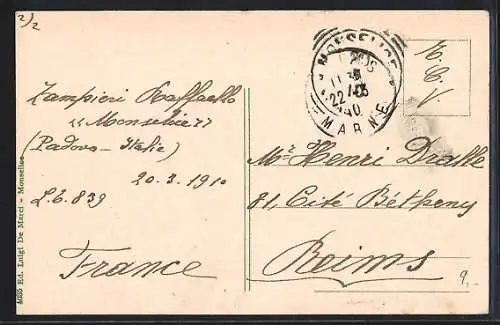 2/2
Zampieri Raffaello
"Monselice"
(Padova - Italie)
20.3.1910
L.6.839
France
MONSELICE
MARNE
R.
C.
V.
Mr Henri Dralle
81, Cité Bétheny
Reims
9,-
4065 Ed. Luigi De Marci - Monselice